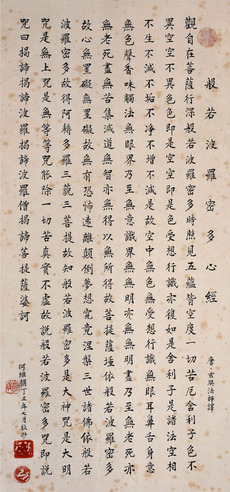 般若波羅密多心經
唐·玄奘法師譯
觀自在菩薩行深般若波羅密多時照見五蘊皆空度一切苦厄舍利子色不
異空空不異色色即是空空即是色受想行識亦復如是舍利子是諸法空相
不生不滅不垢不淨不增不減是故空中無色無受想行識無眼耳鼻舌身意
無色聲香味觸法無眼界乃至無意識界無無明亦無無明盡乃至無老死亦
無老死盡無苦集滅道無智亦無得以無所得故菩提薩埵依般若波羅密多
故心無罣礙無罣礙故無有恐怖遠離顛倒夢想究竟涅槃三世諸佛依般若
波羅密多故得阿耨多羅三藐三菩提故知般若波羅密多是大神咒是大明
咒是無上咒是無等等咒能除一切苦真實不虛故說般若波羅密多咒即說
咒曰揭諦揭諦波羅揭諦波羅僧揭諦菩提薩婆訶
年七月敬抄